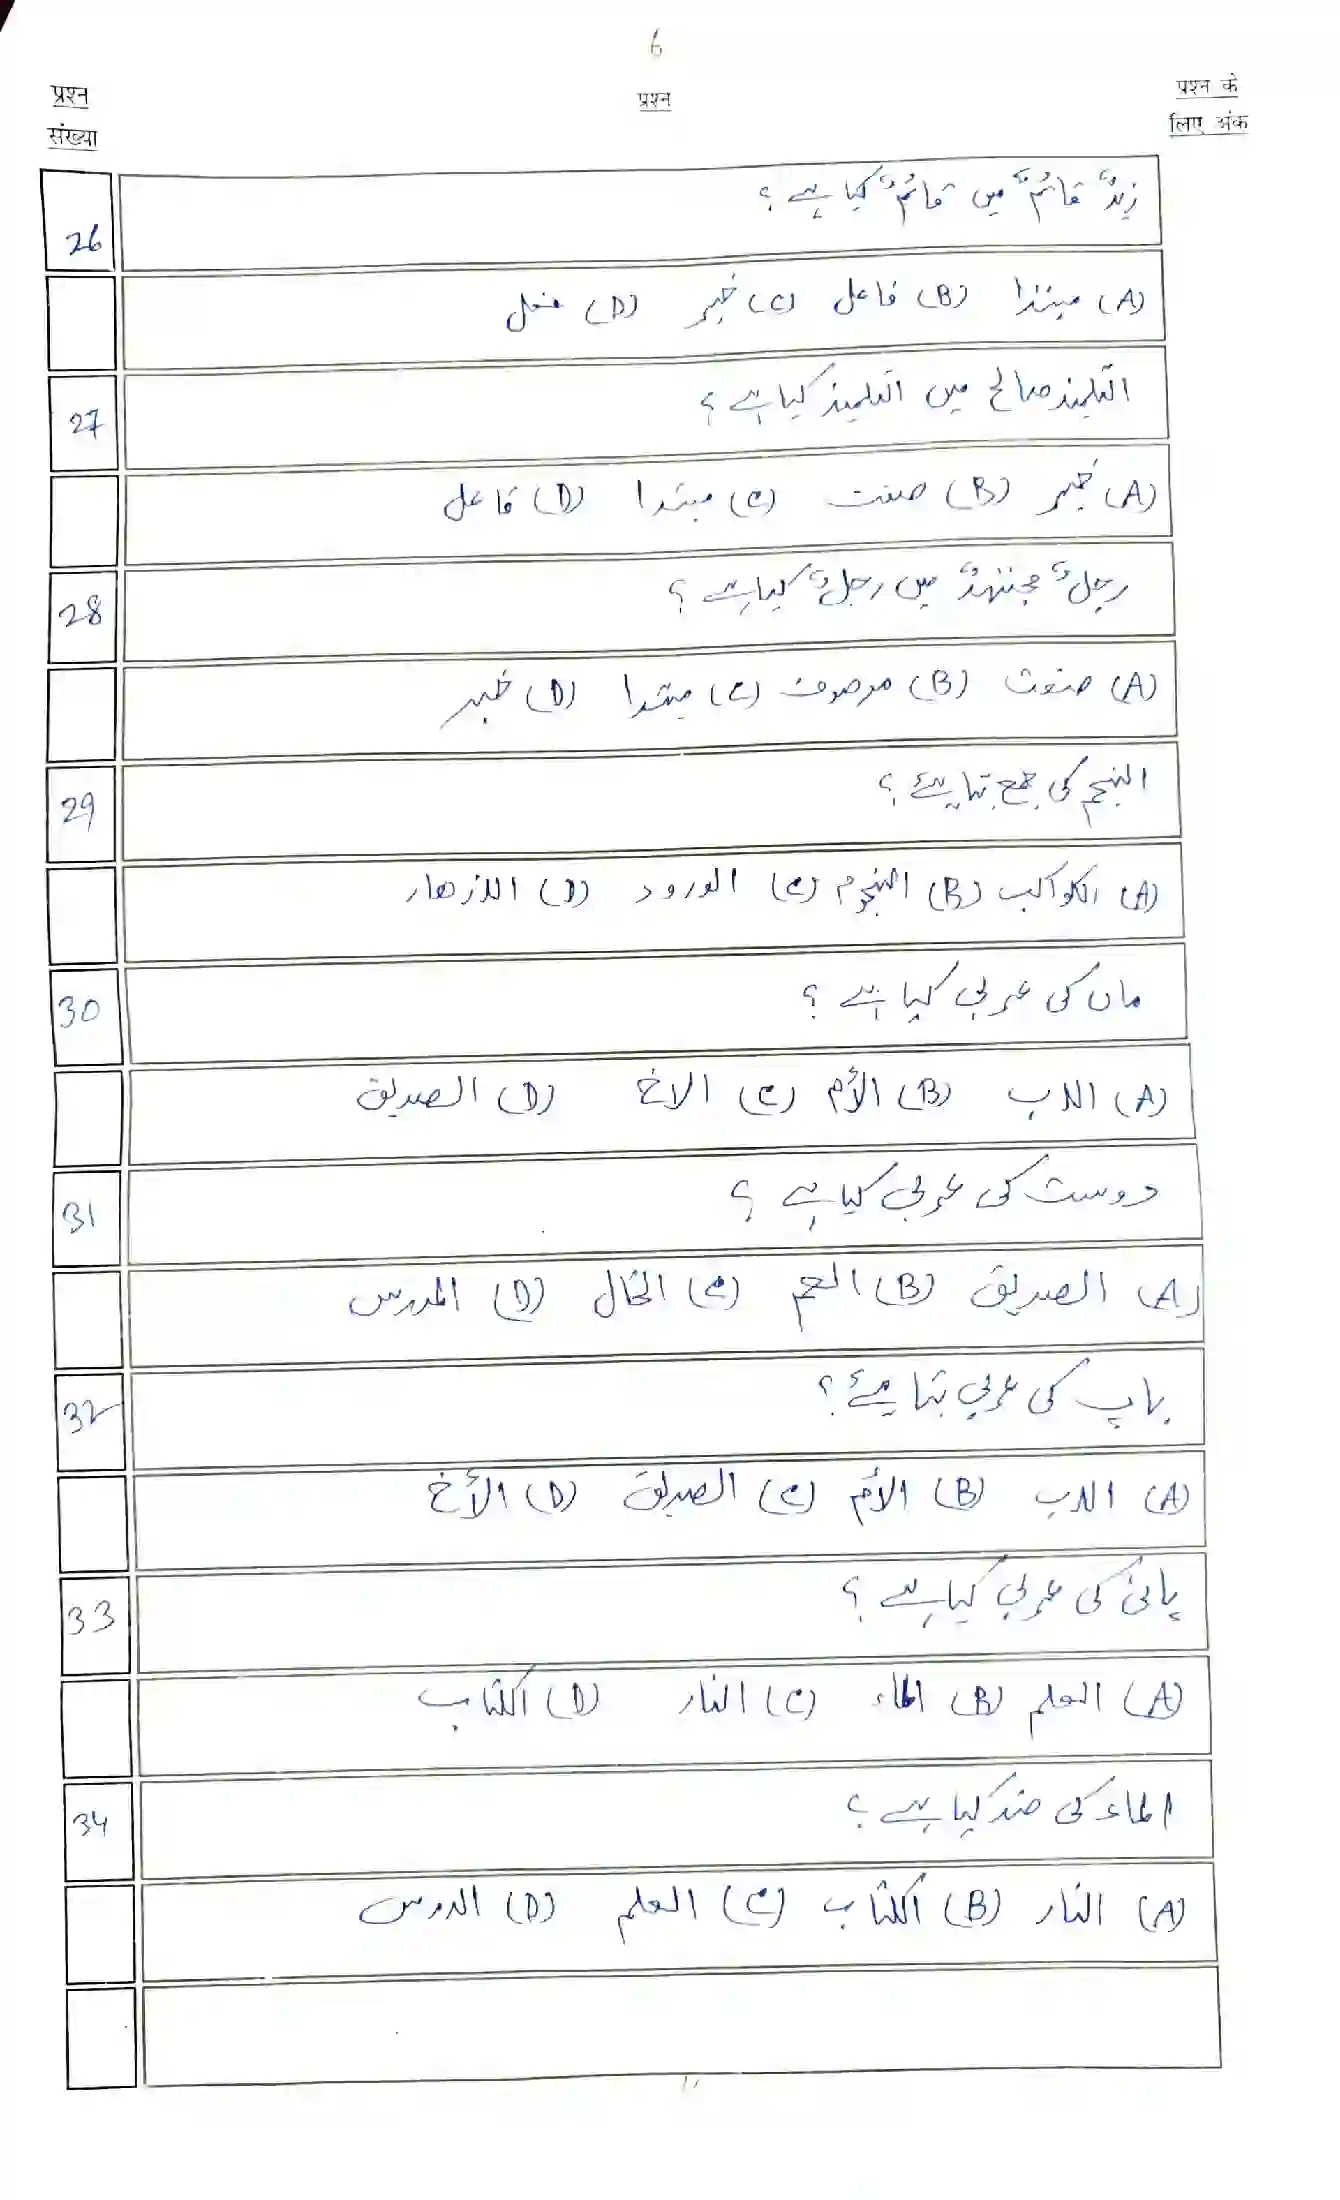 6
प्रश्न संख्या
प्रश्न
प्रश्न के लिए अंक
26 زیدٌ قائمٌ میں قائمٌ کیا ہے ؟
(A) مبتدا (B) فاعل (C) خبر (D) فعل
27 التلمیذ صالح میں التلمیذ کیا ہے ؟
(A) خبر (B) صفت (C) مبتدا (D) فاعل
28 رجلٌ مجتہدٌ میں رجلٌ کیا ہے ؟
(A) صفت (B) موصوف (C) مبتدا (D) خبر
29 النجم کی جمع بتایئے ؟
(A) الکواکب (B) النجوم (C) الورود (D) الازھار
30 ماں کی عربی کیا ہے ؟
(A) الاب (B) الأم (C) الاخ (D) الصدیق
31 دوست کی عربی کیا ہے ؟
(A) الصدیق (B) العم (C) الخال (D) المدرس
32 باپ کی عربی بتایئے ؟
(A) الاب (B) الأم (C) الصدیق (D) الأخ
33 پانی کی عربی کیا ہے ؟
(A) العلم (B) الماء (C) النار (D) الکتاب
34 الماء کی ضد کیا ہے ؟
(A) النار (B) الکتاب (C) العلم (D) الدرس